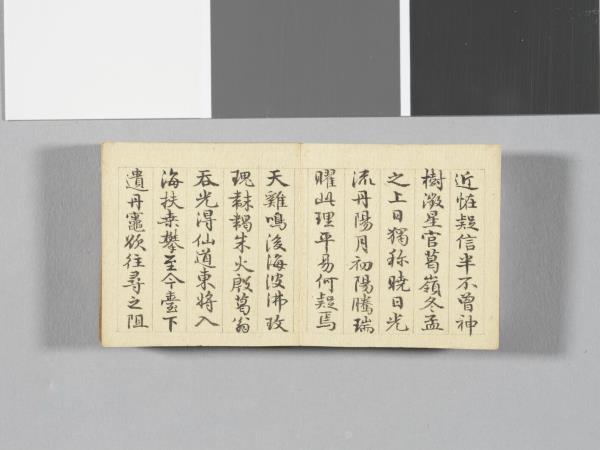 近恠疑信半不曾神
樹澂星官葛嶺冬孟
之上日獨称曉日光
流丹陽月初陽騰瑞
曜此理平易何疑焉
天雞鳴後海波沸玫
瑰朱火殷葛翁
吞光得仙道東將入
海扶桒攀至今臺下
遺丹竈欲往尋之阻